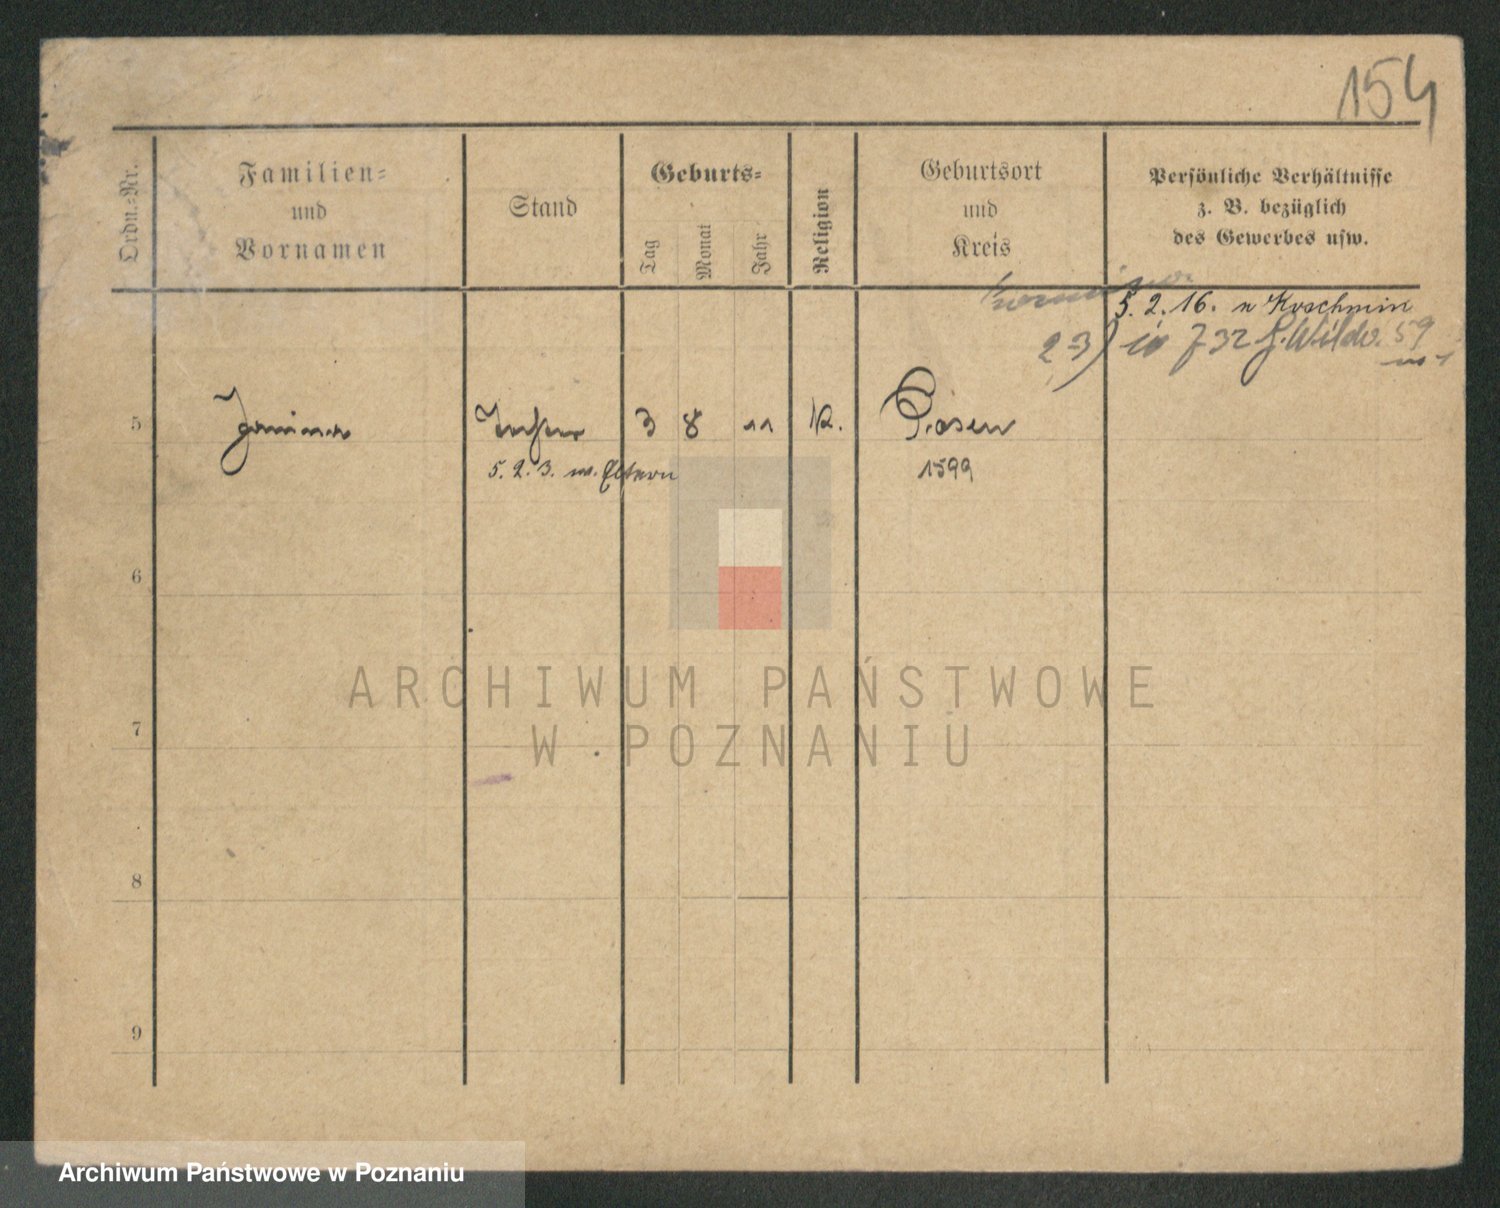 154
Ordn.-Nr.
Familien-
und
Vornamen
Stand
Geburts-
Tag
Monat
Jahr
Religion
Geburtsort
und
Kreis
Persönliche Verhältnisse
z. B. bezüglich
des Gewerbes usw.
5. 2. 16. n Koschmin
23) in 732 G. Wilda. 59
5
Janina
Tochter
3
8
11
K.
Posen
5. 2. 3. m. Eltern
1599
6
7
8
9
ARCHIWUM PAŃSTWOWE
W POZNANIU
Archiwum Państwowe w Poznaniu